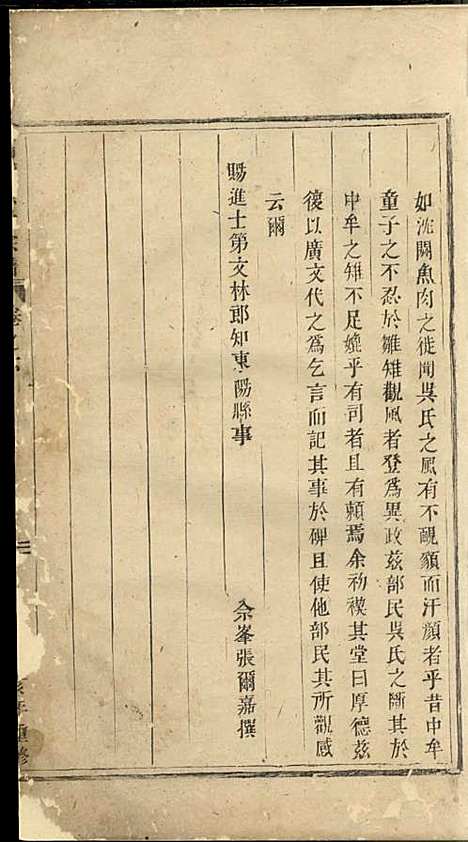 如沈鬭魚肉之徒聞吳氏之風有不靦顙而汗顏者乎昔中牟
童子之不忍於雛雉觀風者登爲異政兹部民吳氏之斷其於
中牟之雉不足嬈乎有司者且有頼焉余初禊其堂曰厚德兹
復以廣文代之爲乞言而記其事於碑且使他部民其所觀感
云爾
賜進士第文林郎知東陽縣事
佘峯張爾嘉撰
卷之
重修